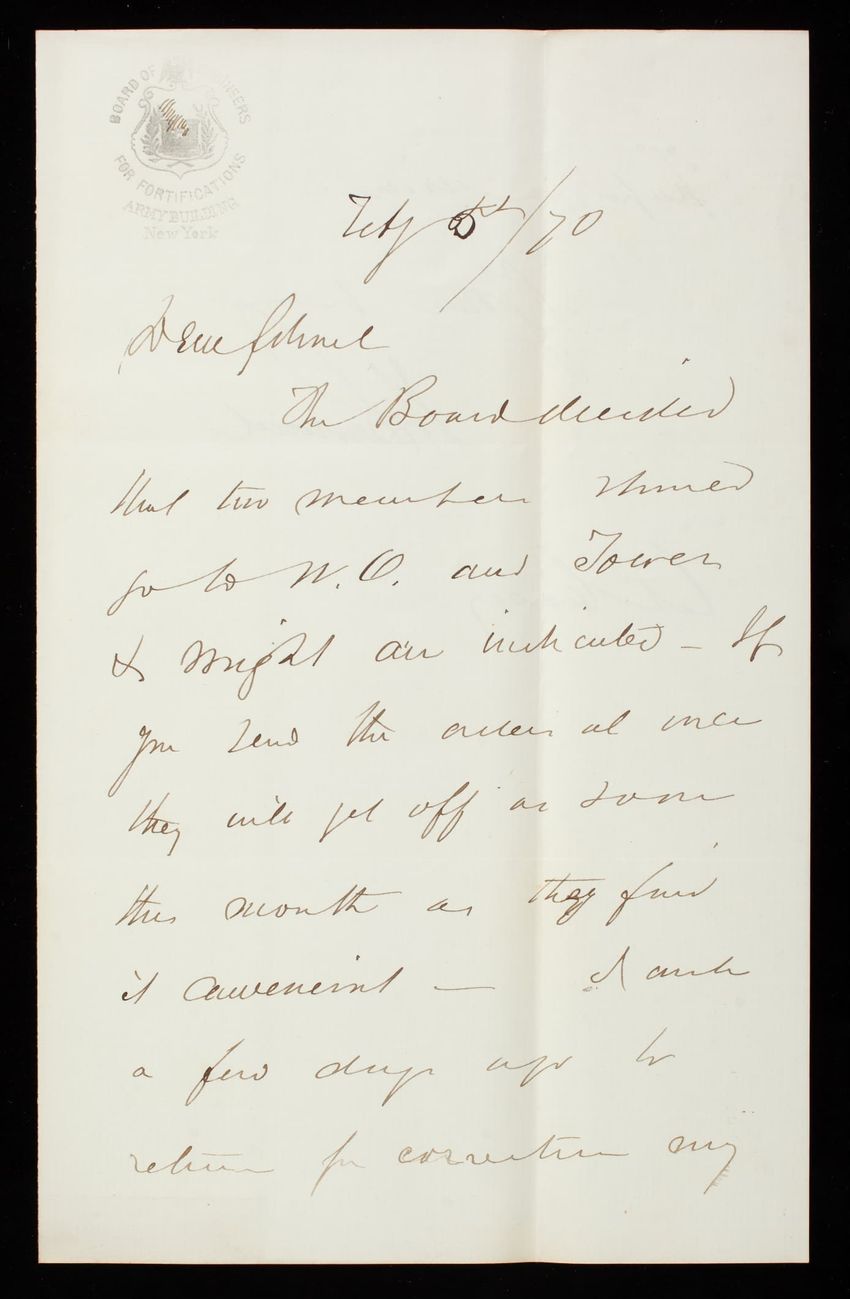 BOARD OF ENGINEERS
FOR FORTIFICATIONS
ARMY BUILDING
New York
Feby 5th/70
Dear Colonel
The Board decided
that two members should
go to N.O. and Tower
& Wright are indicated - If
you send the orders at once
they will get off as soon
this month as they find
it convenient - I
a few days ago to
return for correction my